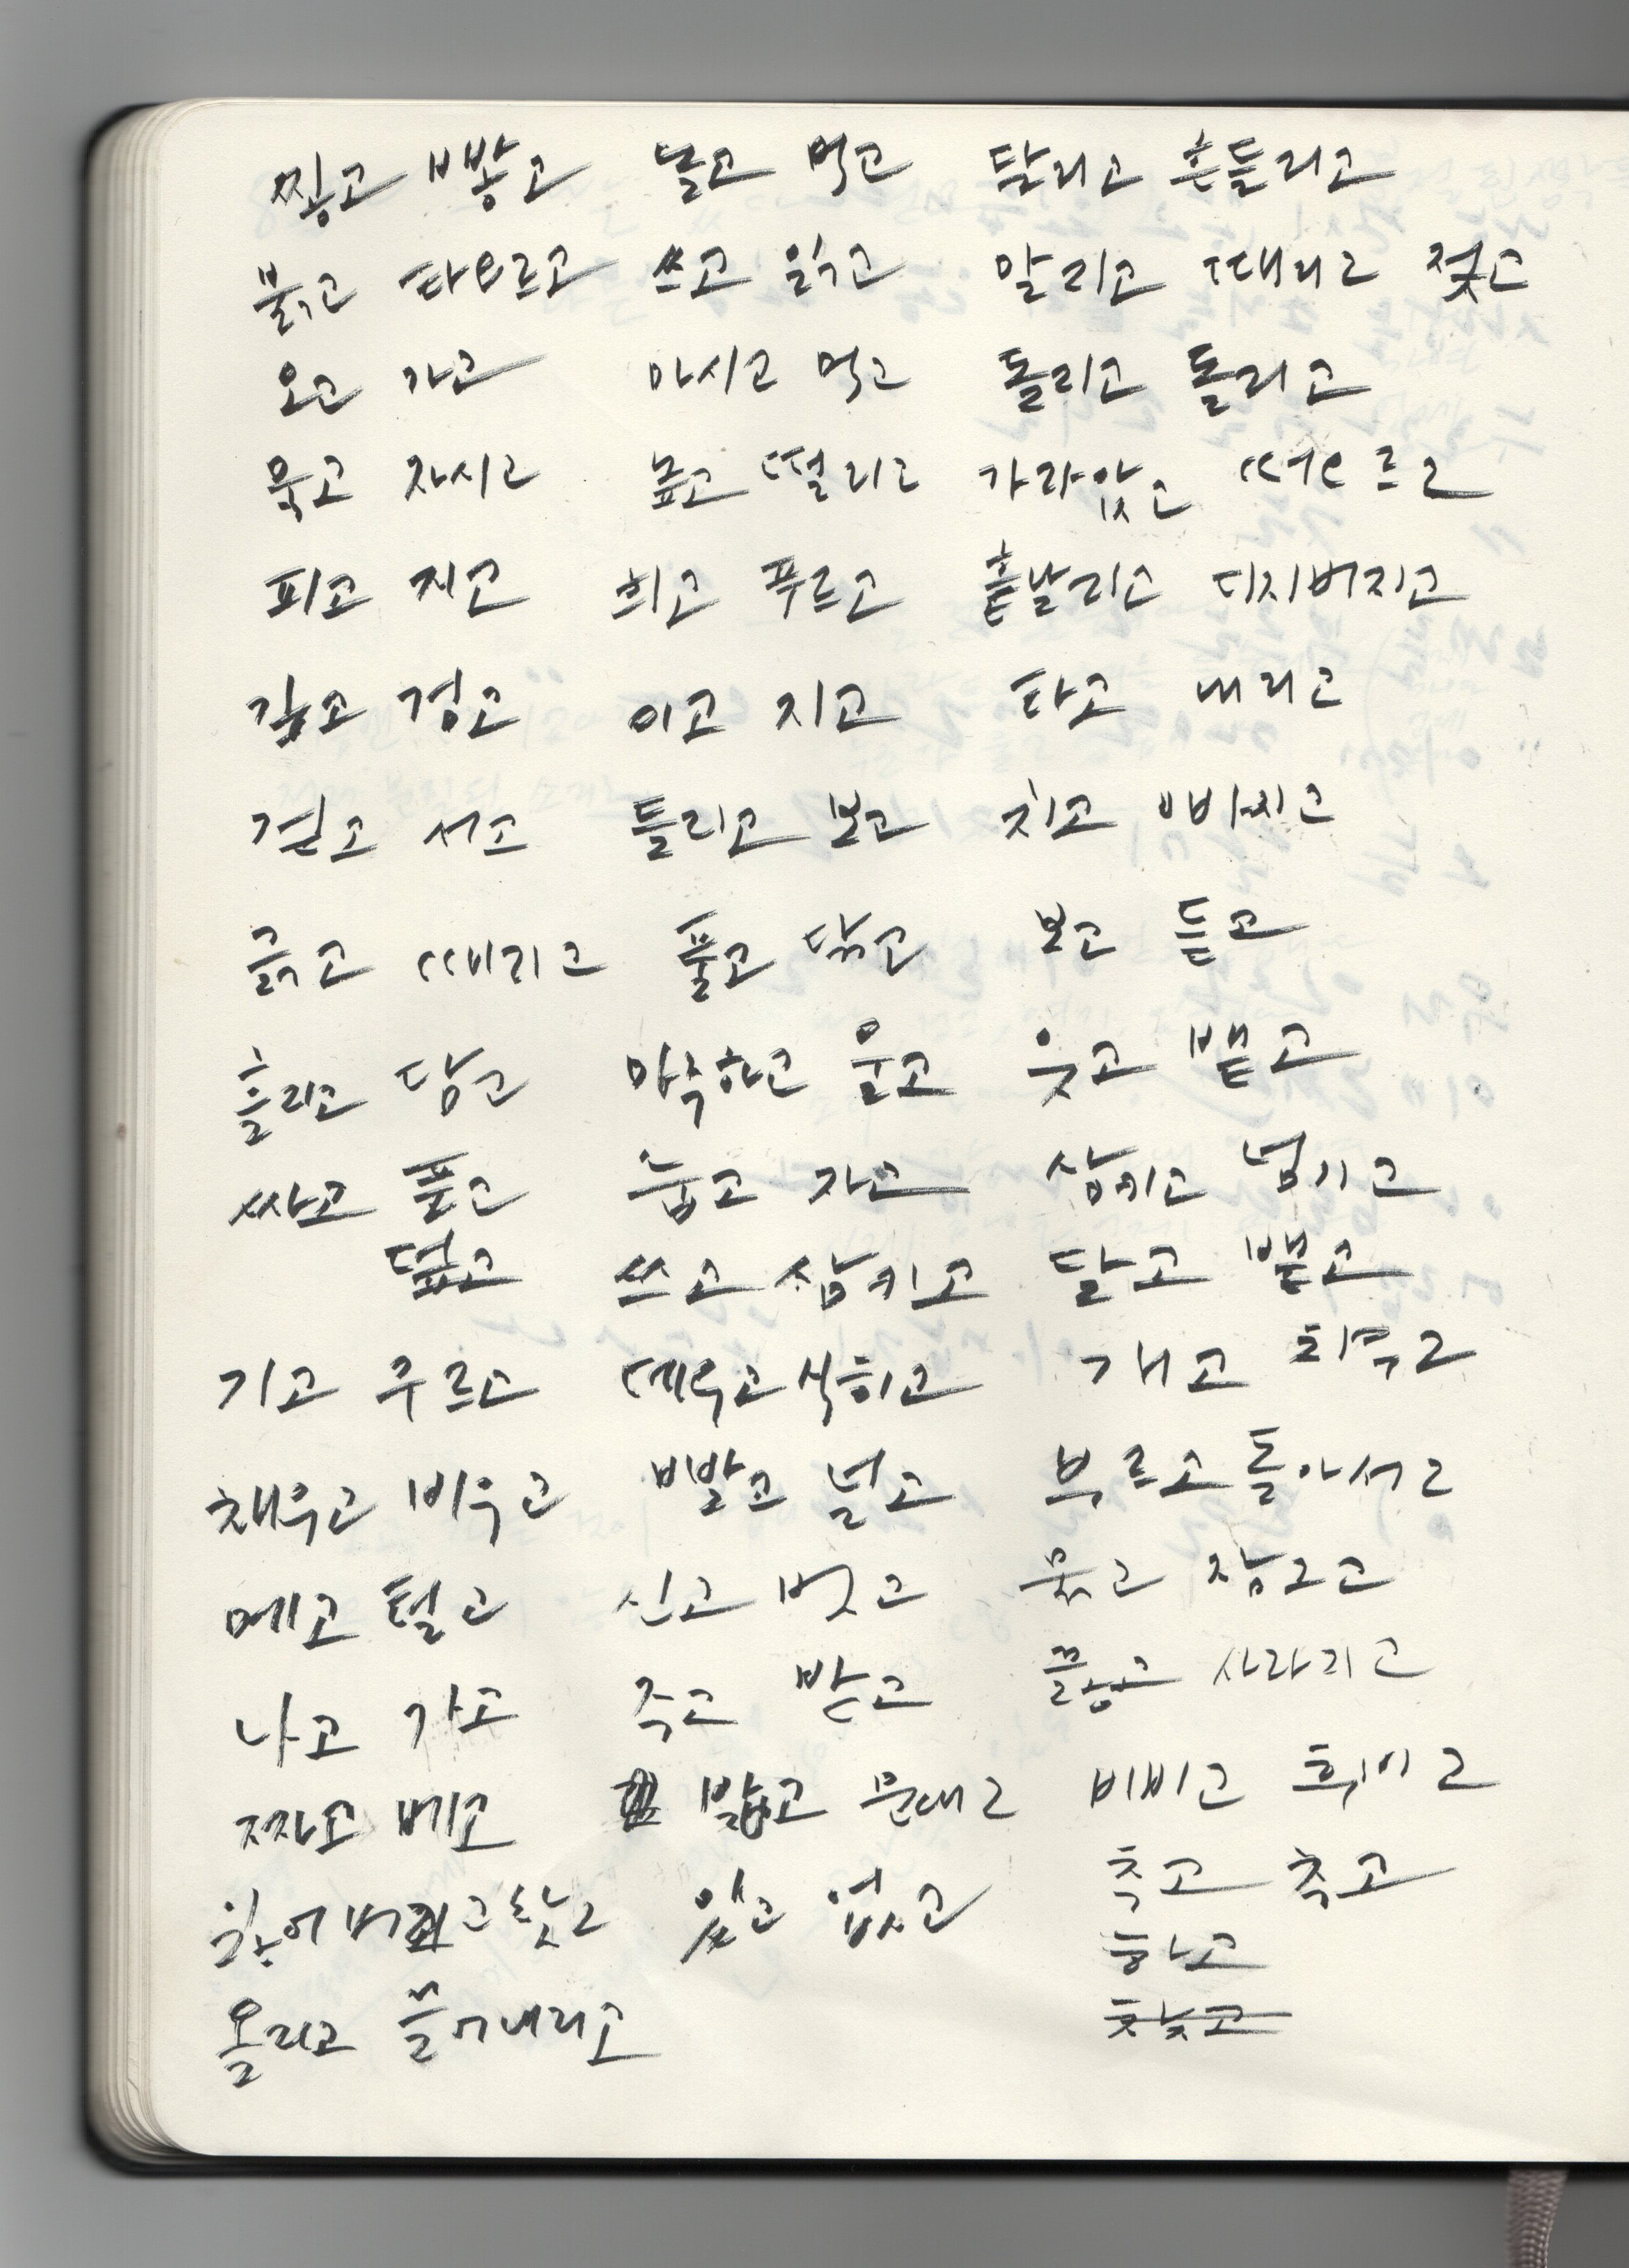 찧고 빻고 널고 먹고 달리고 흔들리고
붉고 타오르고 쓰고 읽고 말리고 때리고 젖고
오고 가고 마시고 먹고 돌리고 돌리고
묵고 자시고 높고 떨리고 가라앉고 떠오르고
피고 지고 희고 푸르고 흩날리고 뒤집어지고
검고 이고 지고 타고 내리고
걷고 서고 들리고 보고 치고 빠지고
긁고 때리고 풀고 닦고 보고 듣고
흘리고 담고 마주하고 울고 웃고 뱉고
싸고 풀고 눕고 자고 삼키고 넘기고
덮고 쓰고 삼키고 달고 뱉고
기고 구르고 데우고 식히고 개고 치우고
채우고 비우고 빨고 널고 부르고 돌아서고
메고 털고 신고 벗고 묶고 잠그고
나고 가고 주고 받고 끓고 사라지고
짜고 베고 밟고 문대고 비비고 휘이고
잃어버리고 찾고 있고 없고 추고 축고
하고
올리고 끌어내리고 찾고